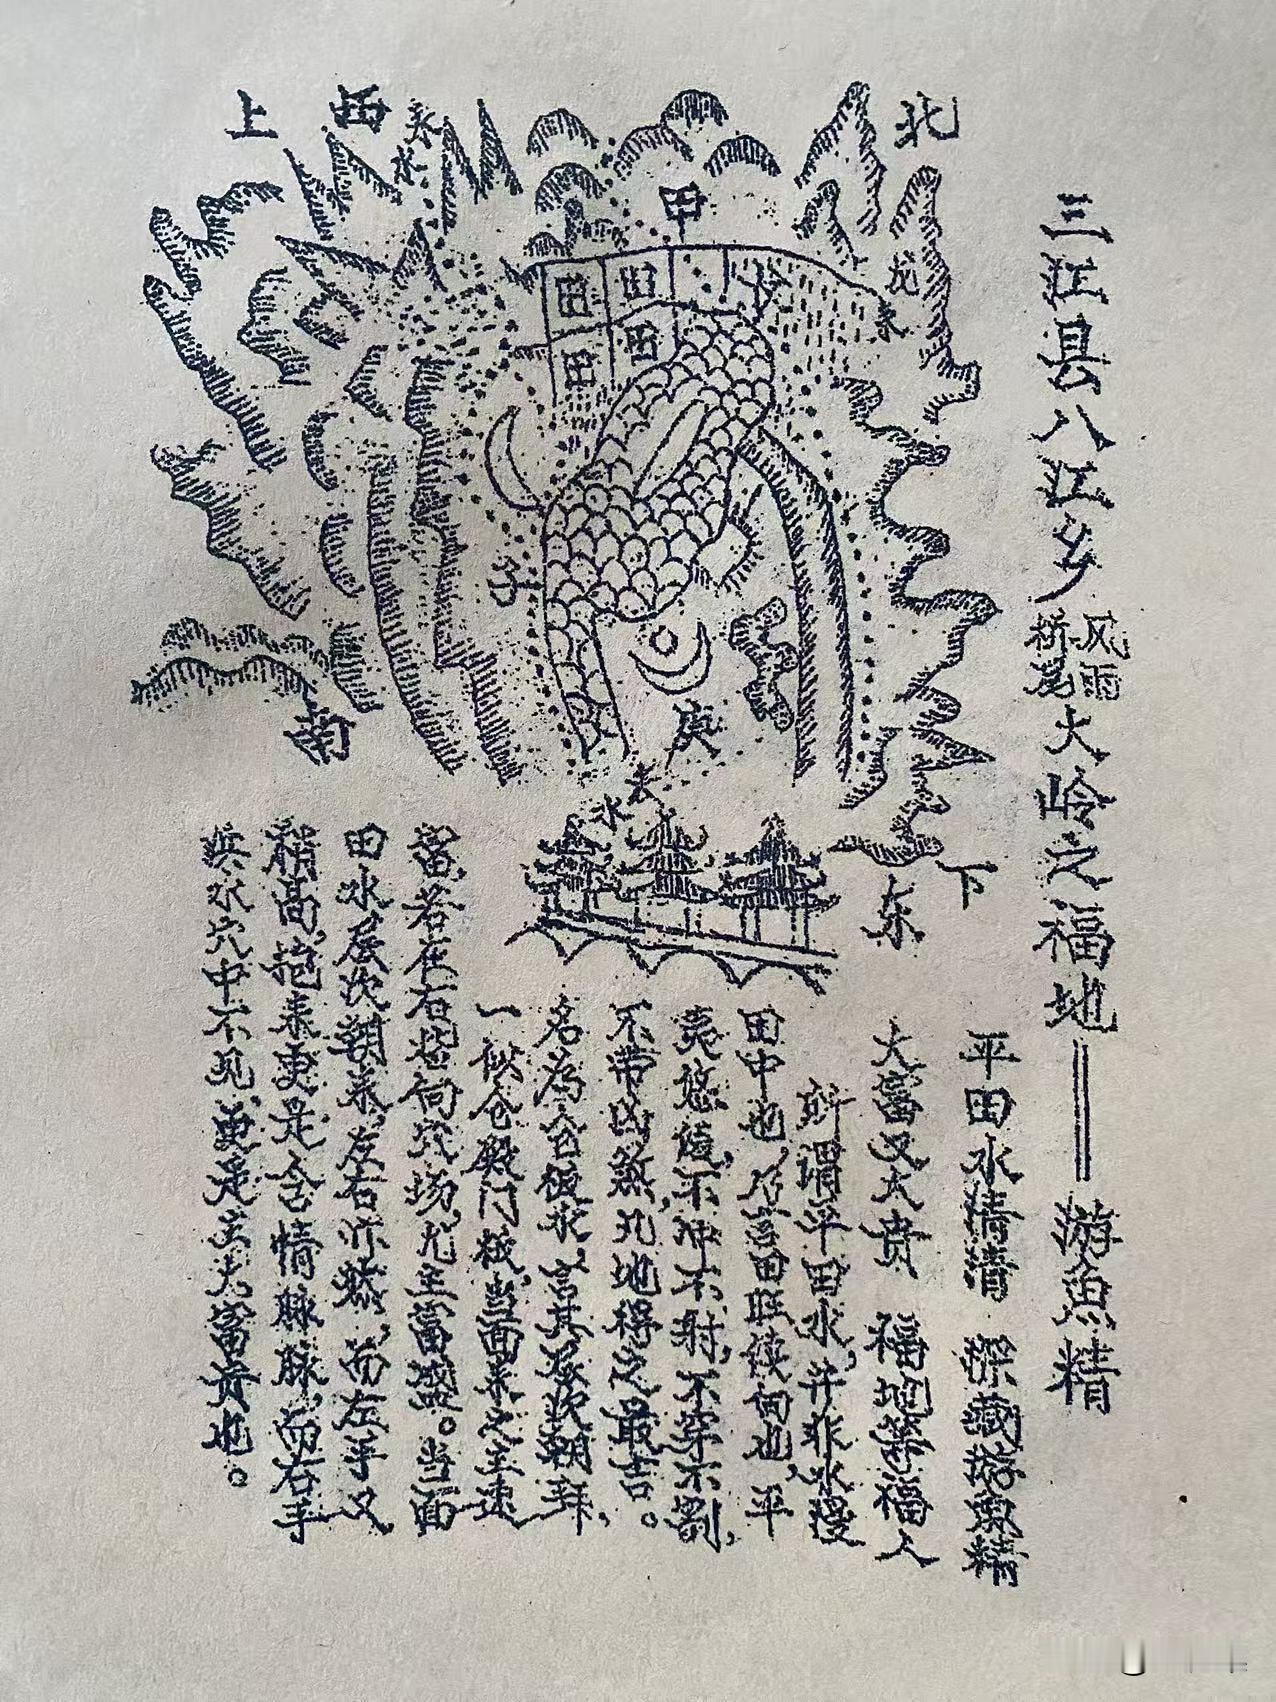 三江县八江乡风雨桥尾大岭之福地══游鱼精
平田水清清 深藏游鱼精
大富又大贵 福地等福人
所谓平田水,并非水漫
田中也,乃言田旺读向也,平
夷悠遠,不冲不射,不穿不割,
不带凶煞,凡地得之最吉。
名为仓板水,言其逐次朝拜,
一似仓殿门板,当面来之主速
富,若在右皆向穴场,尤主富盛。当面
田水层次朝来,左右亦然,而左手又
稍高,抱来更是含情脉脉,而右手
浜水穴中不见,更是主大富贵也。
上
西
来水
北
甲
龙来
田
田
田
田
子
庚
南
去水
下
东